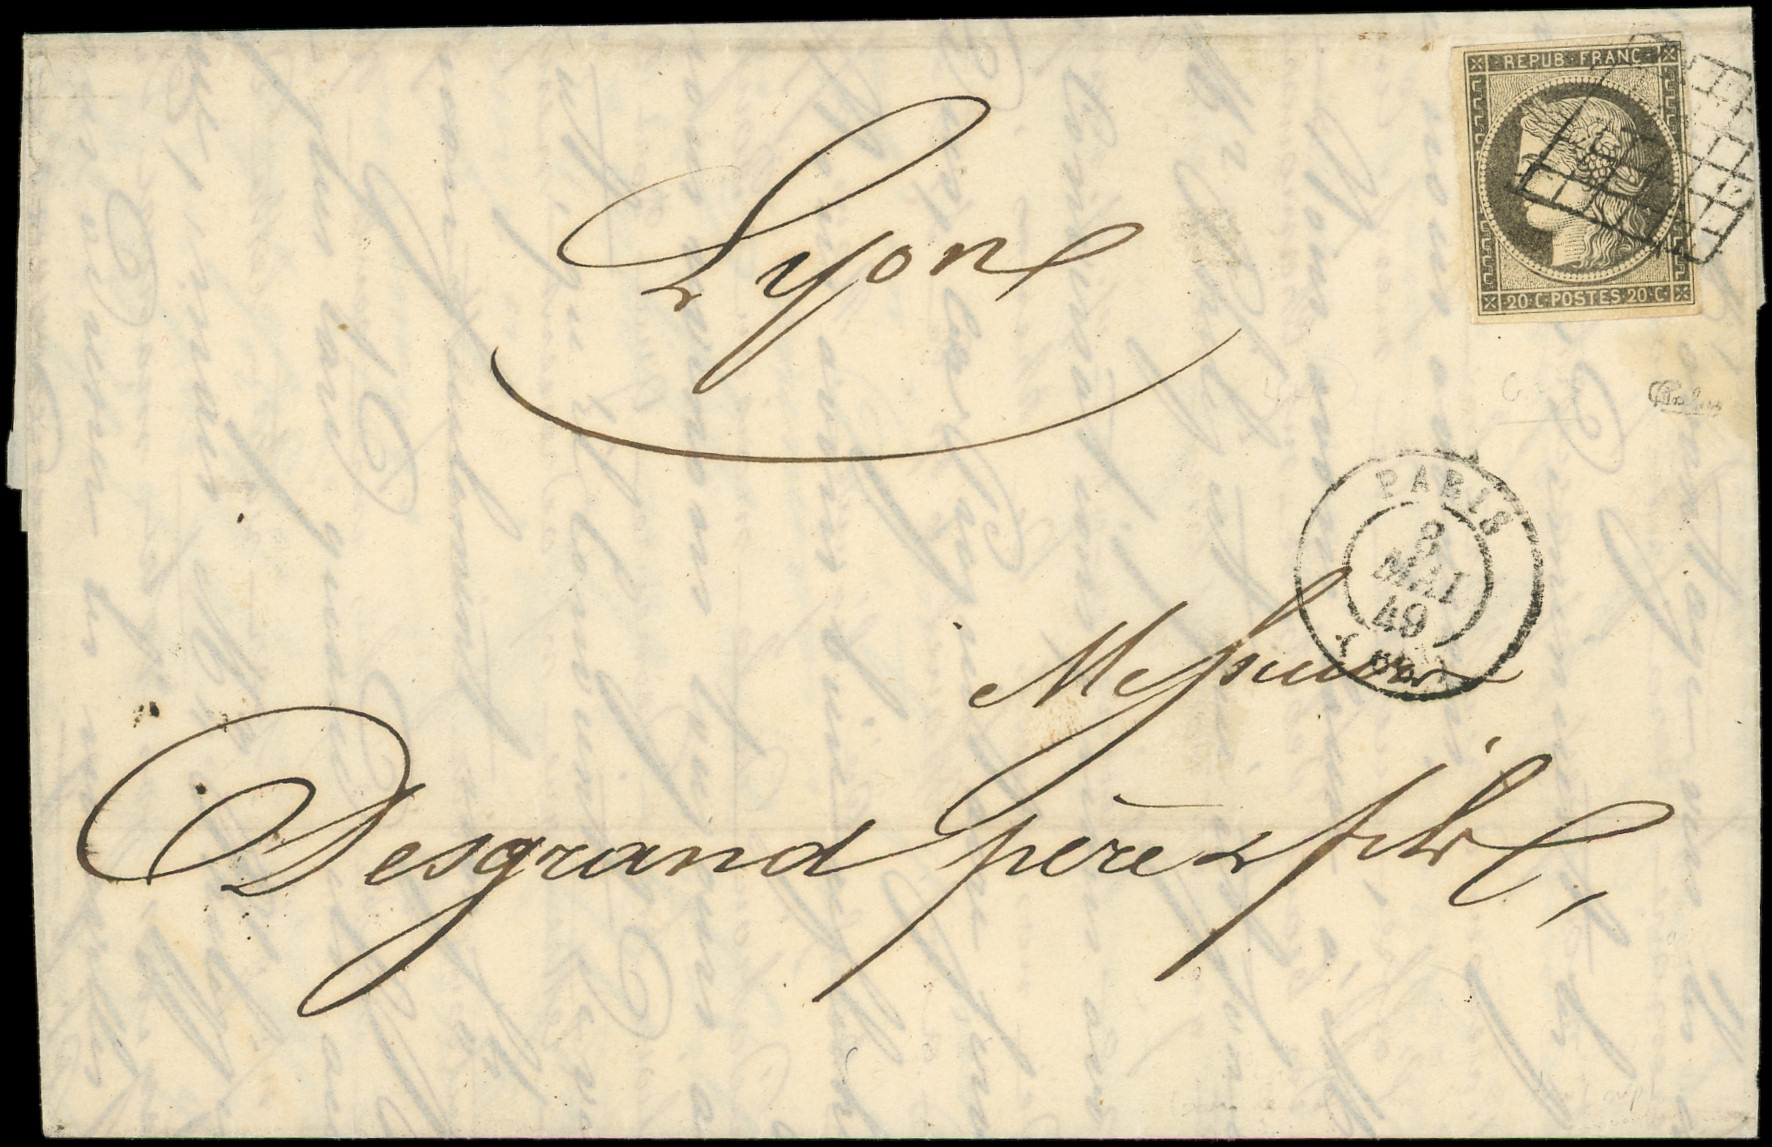 REPUB·FRANC·
20·C·POSTES·20·C·
Lyon
PARIS
8
MAI
49
Messieurs
Desgrand père & fils,